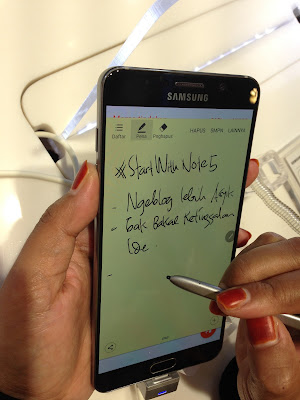 SAMSUNG
Daftar Pena Penghapus HAPUS SMPN LAINNYA
#StartWithNote5
- Ngeblog lebih Asyik
- Gak Bakal Ketinggalan
Ide.
-